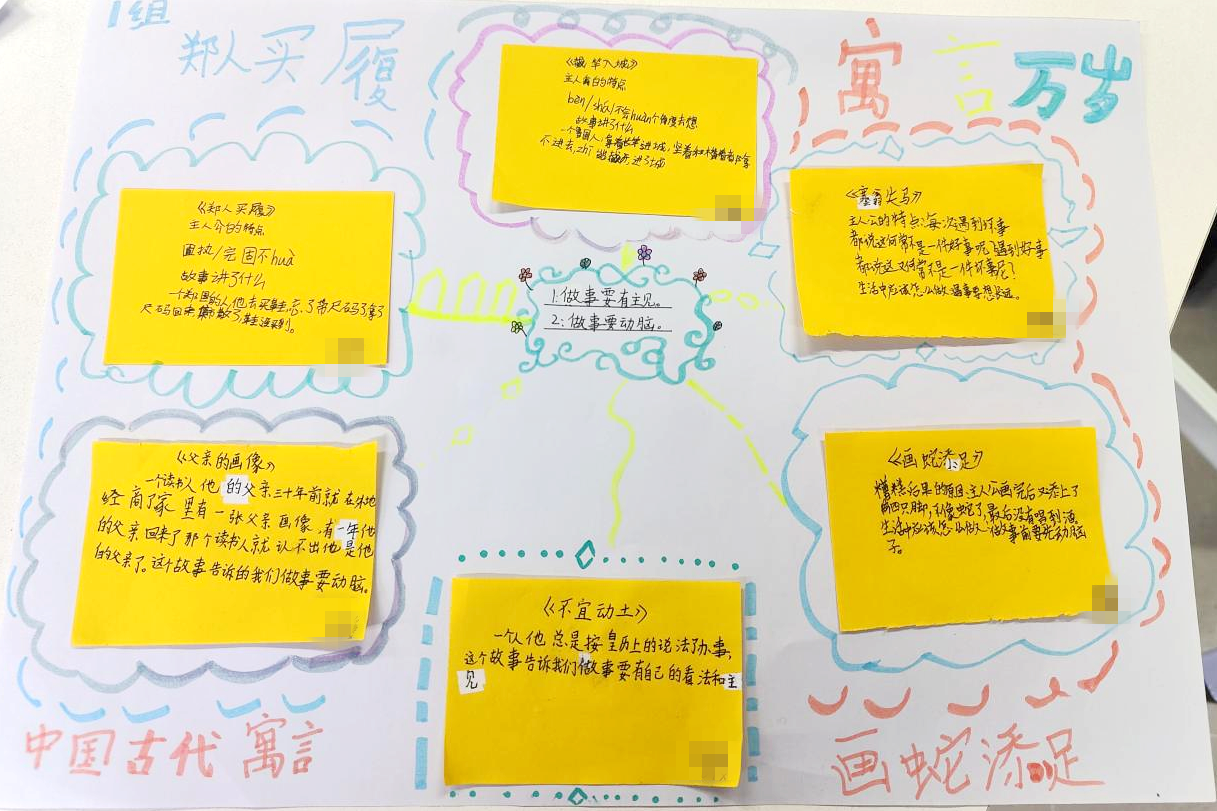 1组
郑人买履
寓言万岁
《截竿入城》
主人翁白的特点
bèn/shǎ/不会huàn个角度去想
故事讲了什么
一个鲁国人,拿着长竿进城,竖着和横着都拿
不进去,zhǐ
《塞翁失马》
主人公的特点:每次遇到坏事
都说这何常不是一件好事呢?遇到好事
都说这又何常不是一件坏事尼?
生活中应该怎么做:遇事要想长远。
《郑人买履》
主人公的特点
固执/完固不huà
故事讲了什么
一个郑国的人他去买鞋,忘了带尺码了拿了
尺码回来散了,鞋没买到。
1:做事要有主见。
2:做事要动脑。
《父亲的画像》
一个读书人他的父亲三十年前就在外地
经商了家里有一张父亲画像,有一年他
的父亲回来了那个读书人就认不出他是他
的父亲了。这个故事告诉的我们做事要动脑。
《画蛇添足》
糟糕后果的原因:主人公画完后又添上了
四只脚,不像蛇了,最后没有喝到酒
生活中应该怎么做:做事前要先动脑
子。
《不宜动土》
一个人他总是按皇历上的说法了办事,
这个故事告诉我们做事要有自己的看法和主
见
中国古代寓言
画蛇添足